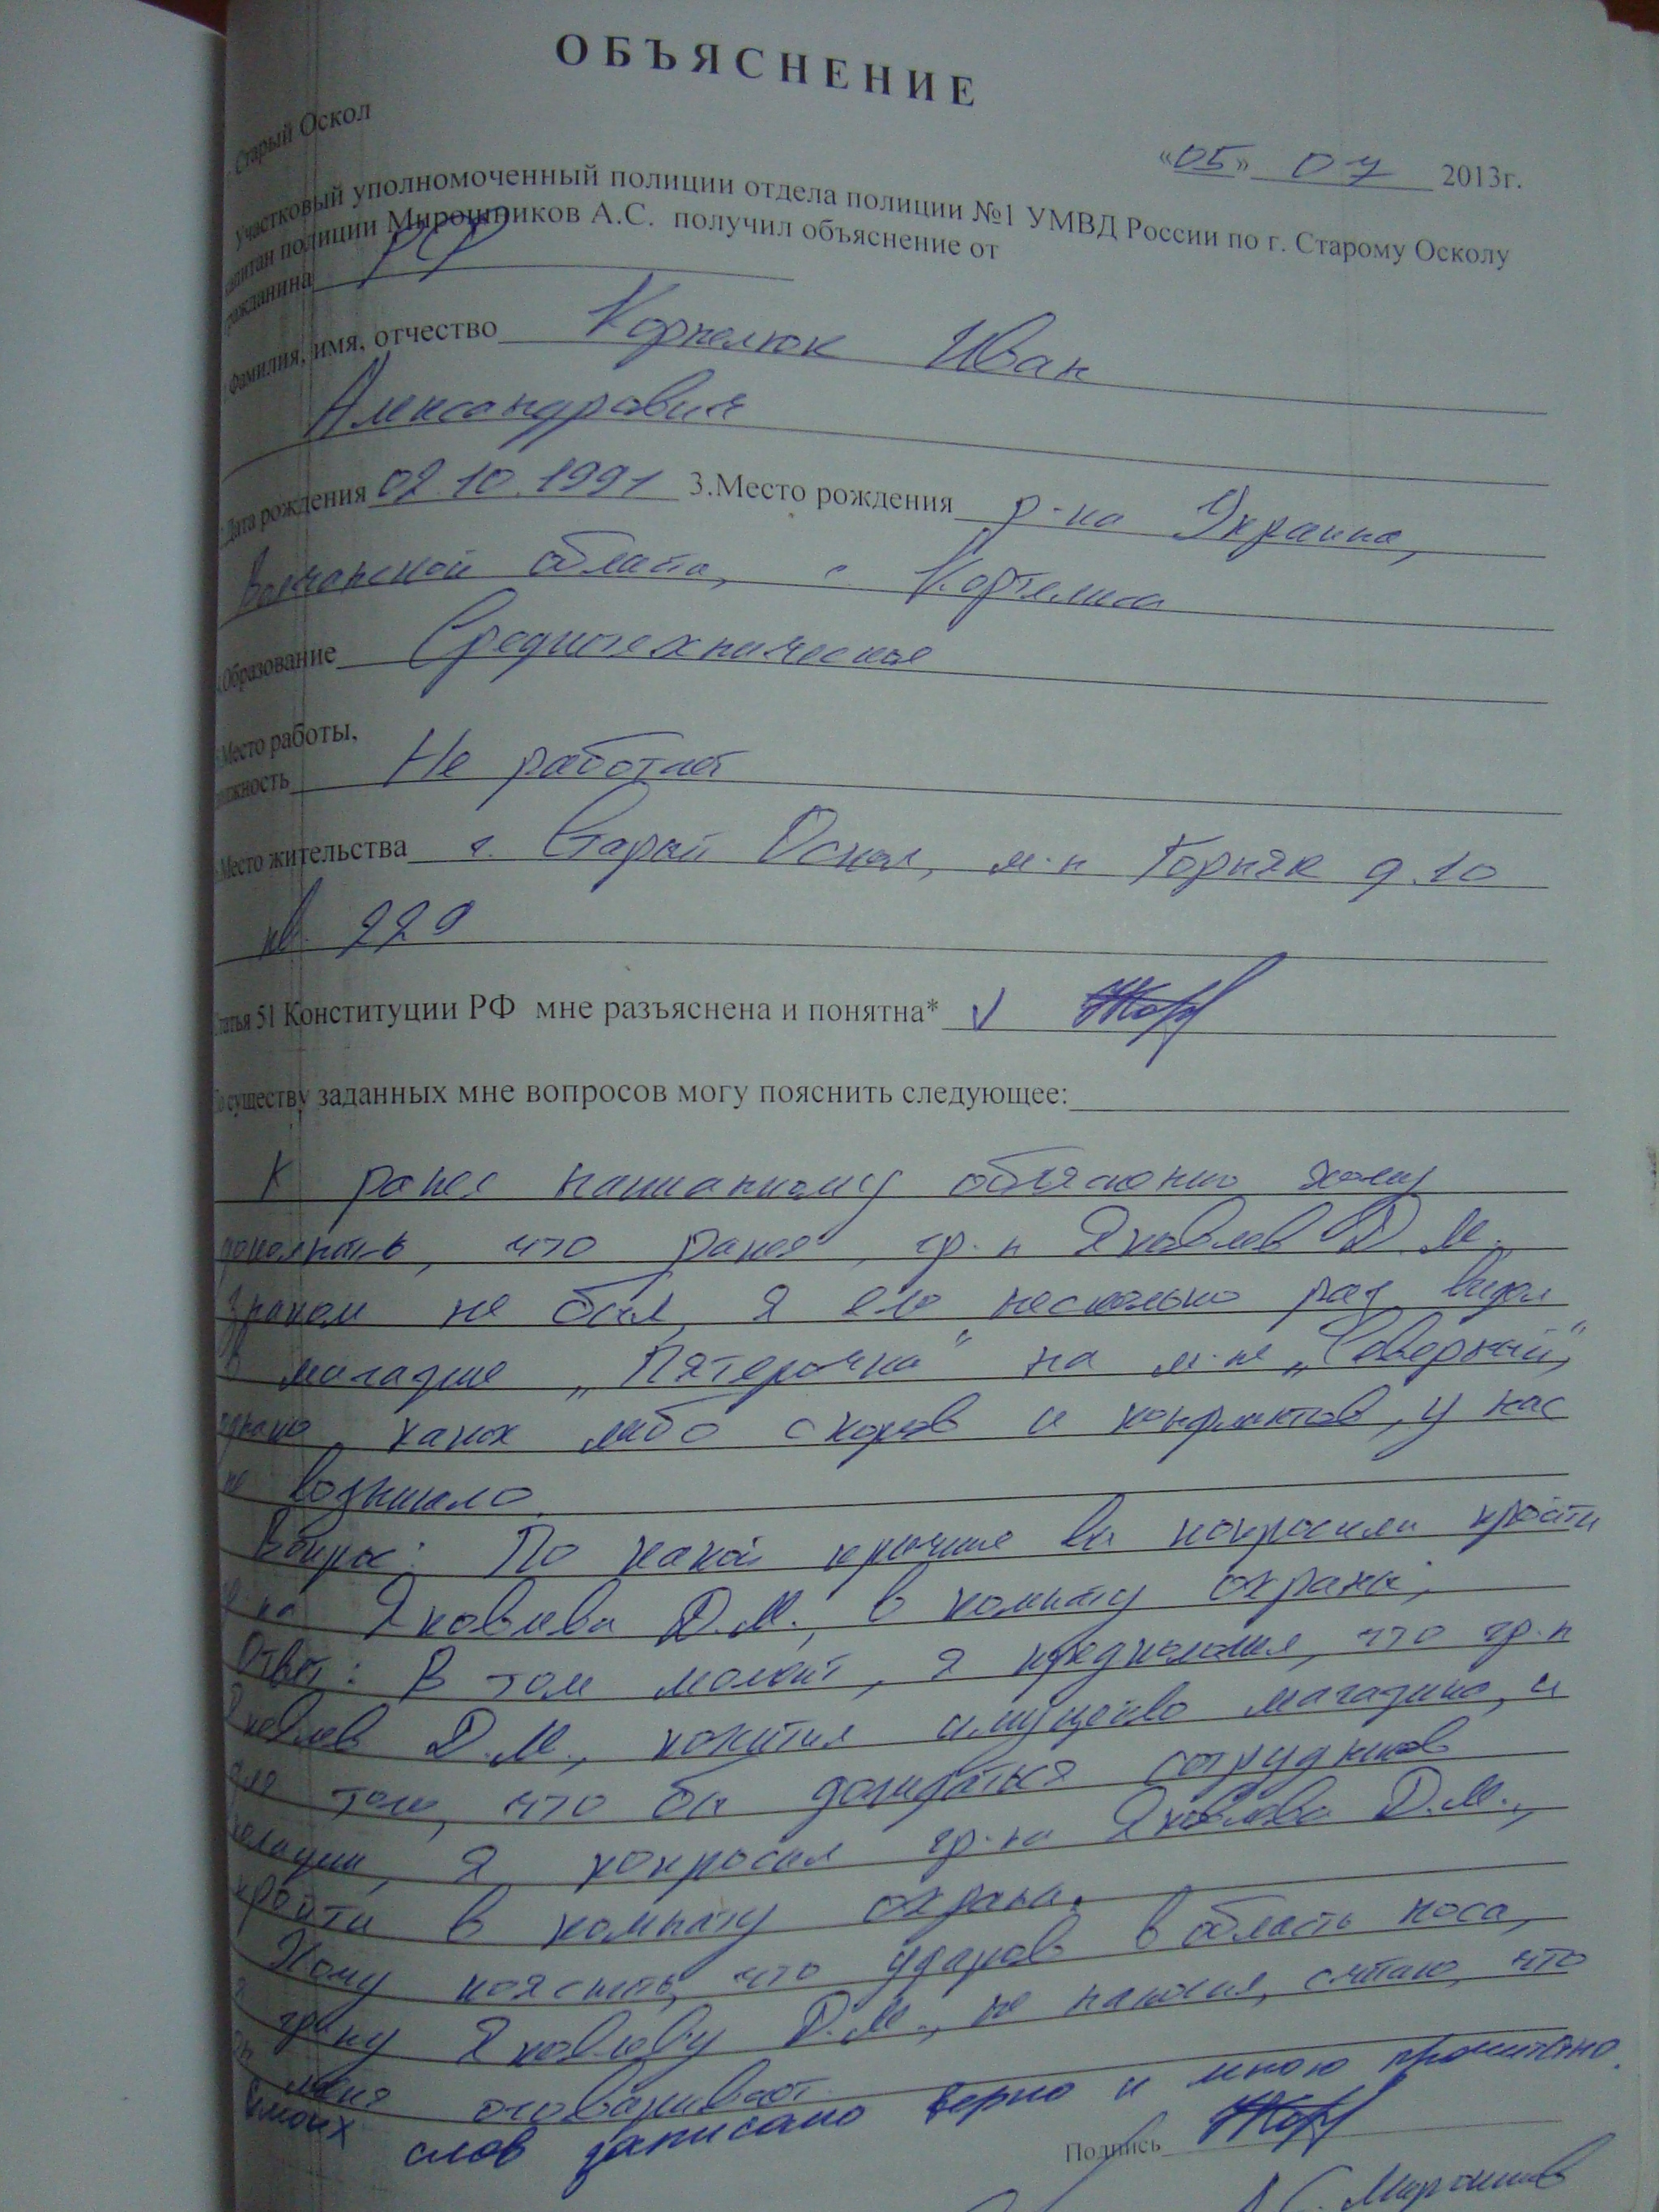 ОБЪЯСНЕНИЕ
Старый Оскол
«05» 07 2013г.
Участковый уполномоченный полиции отдела полиции №1 УМВД России по г. Старому Осколу
капитан полиции Мирошников А.С. получил объяснение от
гражданина РФ
Фамилия, имя, отчество Корнелюк Иван
Александрович
Дата рождения 02.10.1991 3.Место рождения р-ка Украина,
области, с. Кортелисы
Образование Среднетехническое
Место работы,
должность Не работает
Место жительства г. Старый Оскол, м-н Горняк д.10
кв. 229
Статья 51 Конституции РФ мне разъяснена и понятна* V
По существу заданных мне вопросов могу пояснить следующее:
К ранее написанному объяснению хочу
дополнить, что ранее, гр-н Яковлев Д.М.
знаком не был, я его несколько раз видел
в магазине „Пятерочка" на м-не „Северный",
однако каких либо споров и конфликтов, у нас
не возникало.
Вопрос: По какой причине вы попросили пройти
гр-на Яковлева Д.М., в комнату охраны;
Ответ: В том момент, я предположил, что гр-н
Яковлев Д.М., похитил имущество магазина, и
для того, что бы дождаться сотрудников
полиции, я попросил гр-на Яковлева Д.М.,
пройти в комнату охраны.
Хочу пояснить, что ударов в область носа,
я гр-ну Яковлеву Д.М., не наносил, считаю, что
он меня оговаривает.
С моих слов записано верно и мною прочитано.
Подпись
А.С. Мирошников